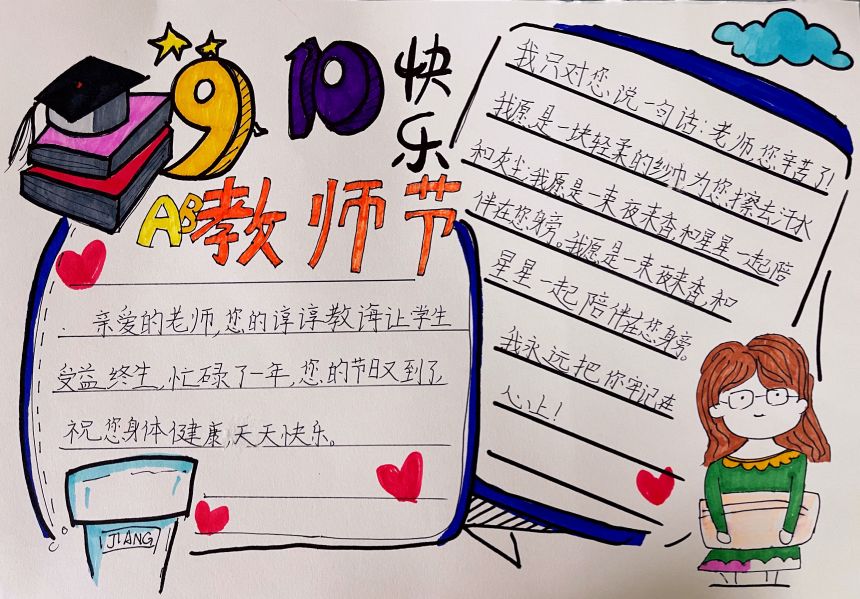 9 10 快乐
AB 教师节
亲爱的老师,您的谆谆教诲让学生
受益终生,忙碌了一年,您的节日又到了,
祝您身体健康,天天快乐。
JIANG
我只对您说一句话:老师,您辛苦了!
我愿是一块轻柔的纱巾为您擦去汗水
和灰尘;我愿是一束夜来香,和星星一起陪
伴在您身旁。我愿是一束夜来香,和
星星一起陪伴在您身旁。
我永远把你牢记在
心上!